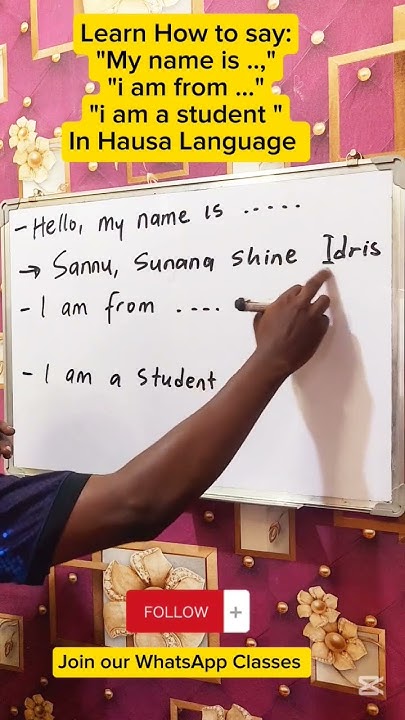 Learn How to say:
"My name is ..,"
"i am from ..."
"i am a student "
In Hausa Language
- Hello, my name is .....
→ Sannu, Sunana shine Idris
- I am from ....
- I am a student
FOLLOW +
Join our WhatsApp Classes